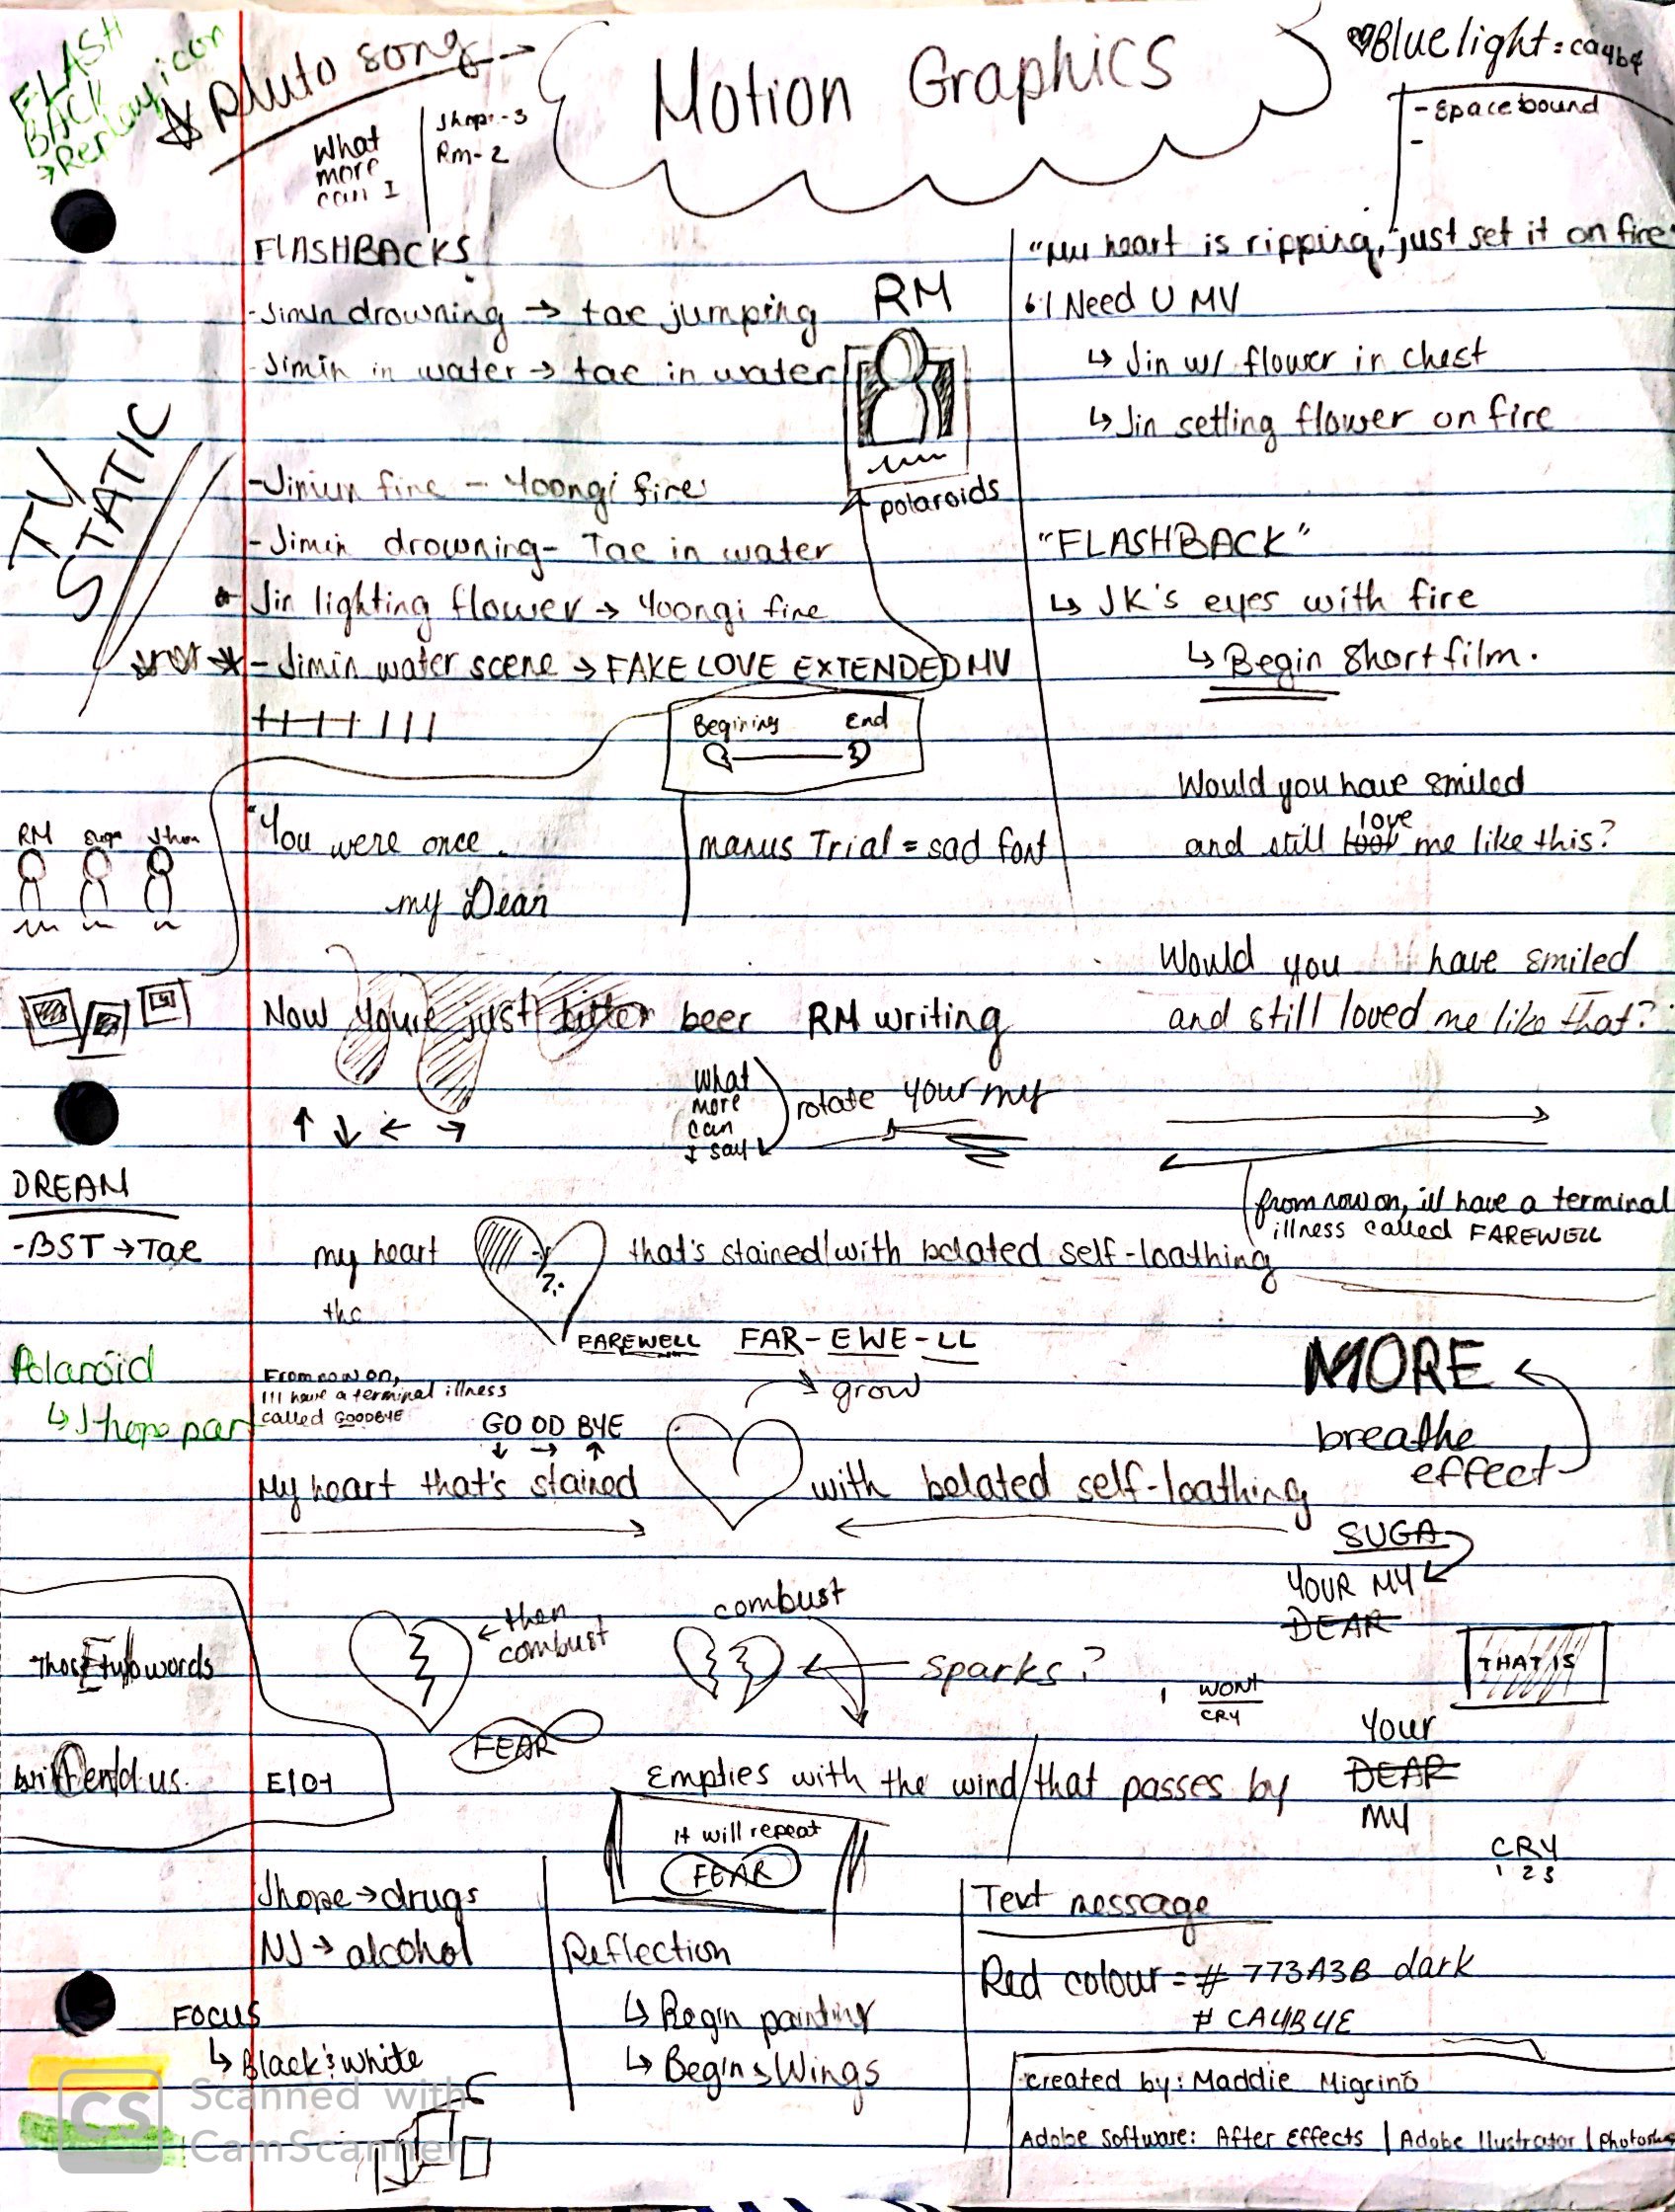 FLASH
BACK
→ Replay icon
Pluto song →
Motion Graphics
♡Bluelight: ca4b4
- Spacebound
-
What
more
can I
Jhope-3
Rm-2
FLASHBACKS
- Jimin drowning → tae jumping
- Jimin in water → tae in water
RM
polaroids
TV
STATIC
- Jimin fire - Yoongi fire
- Jimin drowning - Tae in water
Jin lighting flower → Yoongi fire
- Jimin water scene → FAKE LOVE EXTENDED MV
"my heart is ripping, just set it on fire"
I Need U MV
↳ Jin w/ flower in chest
↳ Jin setting flower on fire
"FLASHBACK"
↳ JK's eyes with fire
↳ Begin Short film.
Begining End
RM Suga Jhope
"You were once
my Dear
manus Trial = sad font
Would you have smiled
and still look love me like this?
Would you have smiled
and still loved me like that?
Now you're just bitter beer
RM writing
What
more
can
I say
rotate your my
↑ ↓ ← →
from now on, ill have a terminal
illness called FAREWELL
DREAM
- BST → Tae
my heart that's stained/with belated self-loathing
the
?
FAREWELL FAR-EWE-LL
Polaroid
↳ Jhope part
From now on,
Ill have a terminal illness
called GOODBYE
GO OD BYE
↓ → ↑
→ grow
MORE
breathe
effect
My heart that's stained with belated self-loathing
SUGA
YOUR MY
DEAR
Those two words
will end us.
E101
← then
combust
combust
Sparks?
I WONT
CRY
THAT IS
FEAR
Empties with the wind/that passes by
Your
DEAR
MY
It will repeat
FEAR
CRY
1 2 3
Jhope → drugs
NJ → alcohol
FOCUS
↳ Black & white
Reflection
↳ Begin painting
↳ Begin → Wings
Text message
Red colour = # 773A3B dark
# CA4B4E
created by: Maddie Migrino
Adobe Software: After Effects | Adobe Ilustrator | Photosho
CS Scanned with
CamScanner